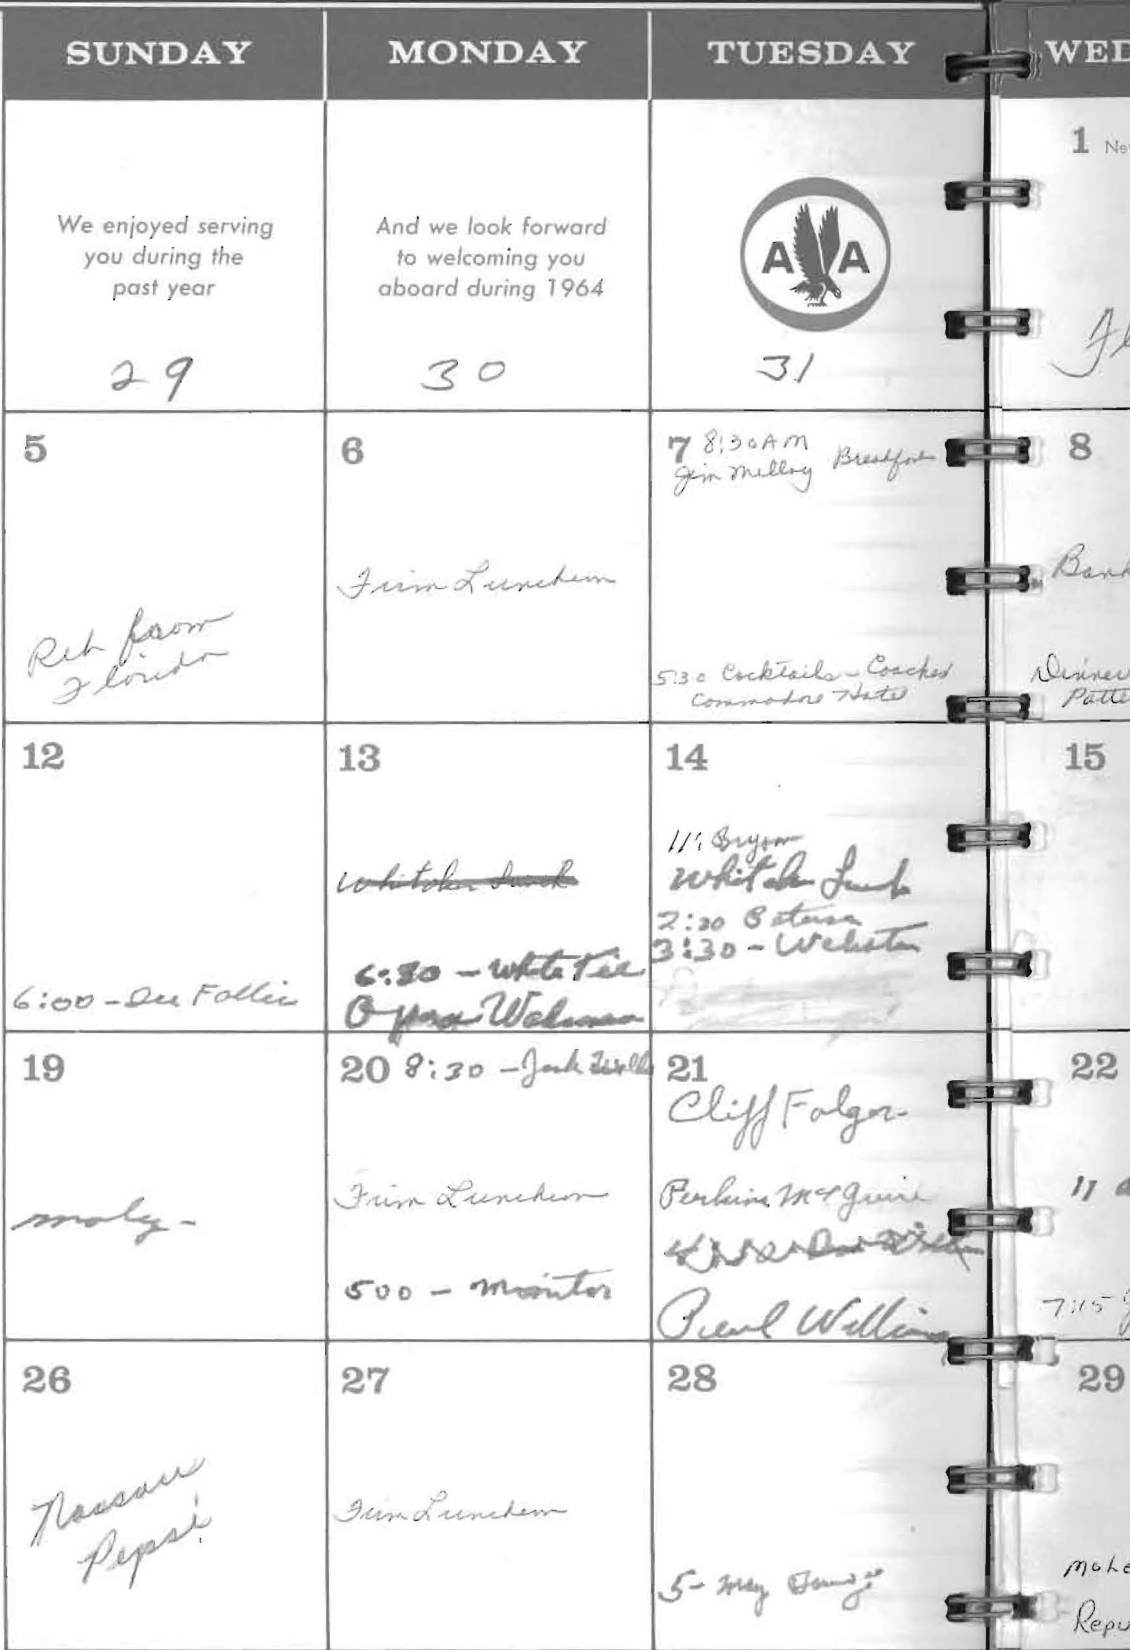 SUNDAY
MONDAY
TUESDAY
WED
We enjoyed serving
you during the
past year
29
And we look forward
to welcoming you
aboard during 1964
30
A A
31
1 Ne
Fl
5
Ret from
Florida
6
Firm Luncheon
7 8:30 AM
Jim Milloy Breakfast
5:30 Cocktails - Coaches
Commodore Hotel
8
Bank
Dinner
Patte
12
6:00 - See Follies
13
Whitaker Lunch
6:30 - White Tie
Opera
14
11: Bryson
Whitaker Lunch
2:30
3:30 - Webster
15
19
20 8:30 - Jack
Firm Luncheon
500 - Monitor
21
Cliff Folger
Perkins McGuire
Pearl William
22
11
7:15
26
Nassau
Pepsi
27
Firm Luncheon
28
5-
29
Repu